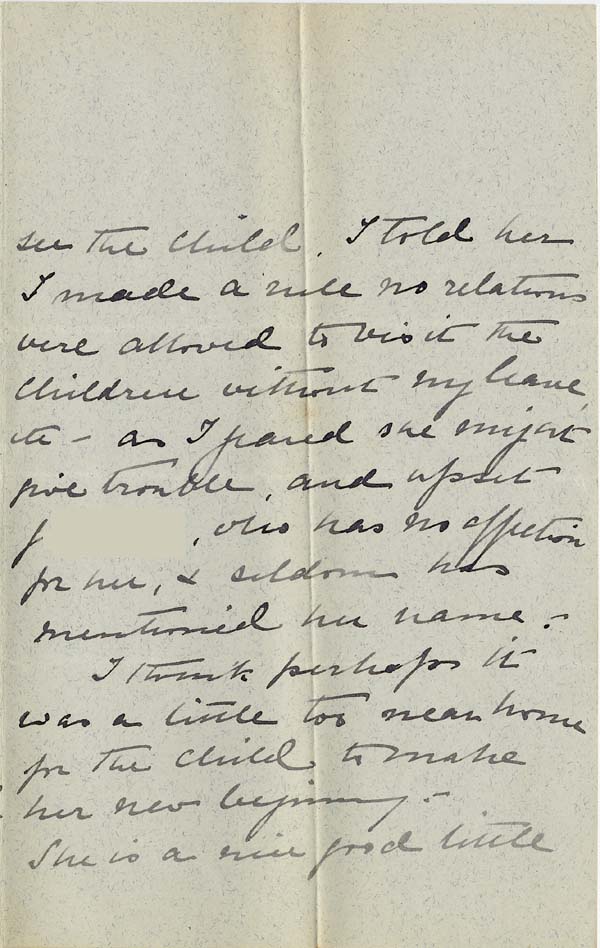 see the child. I told her
I made a rule no relations
were allowed to visit the
children without my leave,
etc - as I feared she might
give trouble, and upset
J , who has no affection
for her, & seldom has
mentioned her name. -
I think perhaps it
was a little too near home
for the child to make
her new beginning. -
She is a nice good little